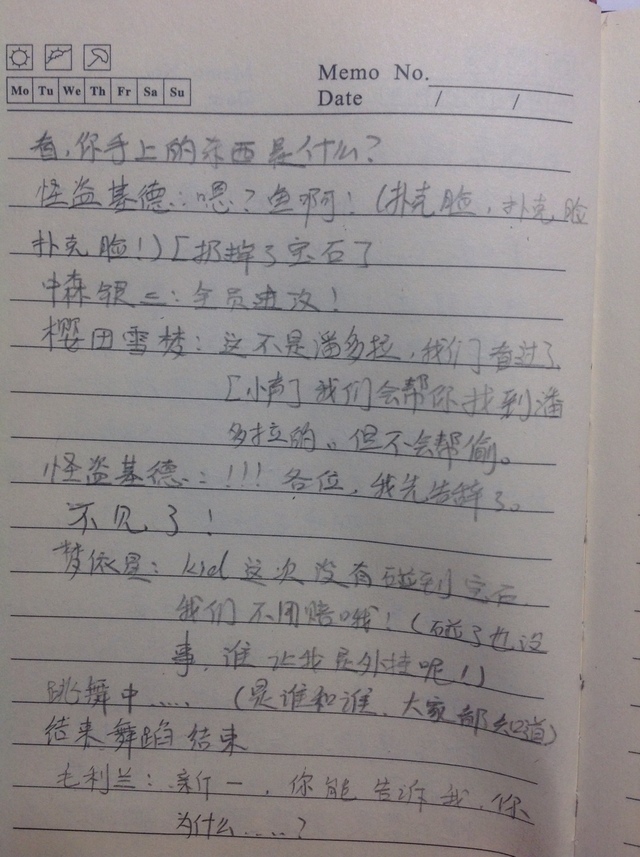 Memo No.
Mo Tu We Th Fr Sa Su
Date / /
看,你手上的东西是什么?
怪盗基德:嗯?鱼啊!(扑克脸,扑克脸
扑克脸!)[扔掉了宝石了
中森银三:全员进攻!
樱田雪梦:这不是潘多拉,我们看过了
[小声]我们会帮你找到潘
多拉的。但不会帮偷。
怪盗基德:!!!各位,我先告辞了。
不见了!
梦依星:kid这次没有碰到宝石
我们不用赔哦!(碰了也没
事,谁让我是外挂呢!)
跳舞中.....(是谁和谁,大家都知道)
结束舞蹈结束
毛利兰:新一,你能告诉我,你
为什么.....?